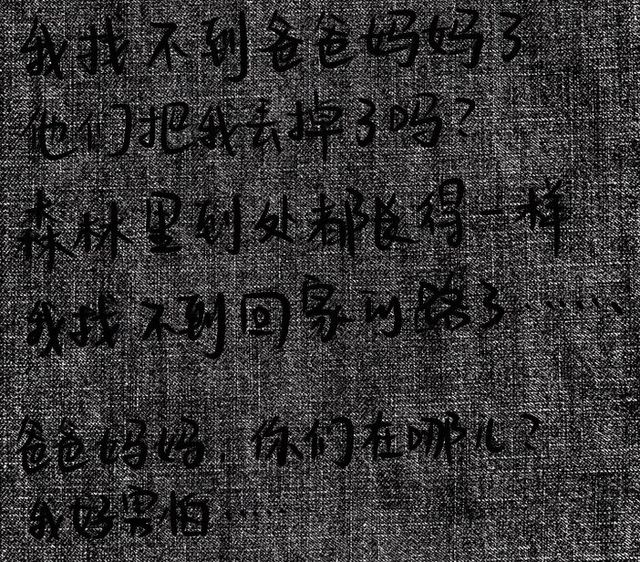 我找不到爸爸妈妈了
他们把我丢掉了吗?
森林里到处都长得一样
我找不到回家的路了……
爸爸妈妈,你们在哪儿?
我好害怕……